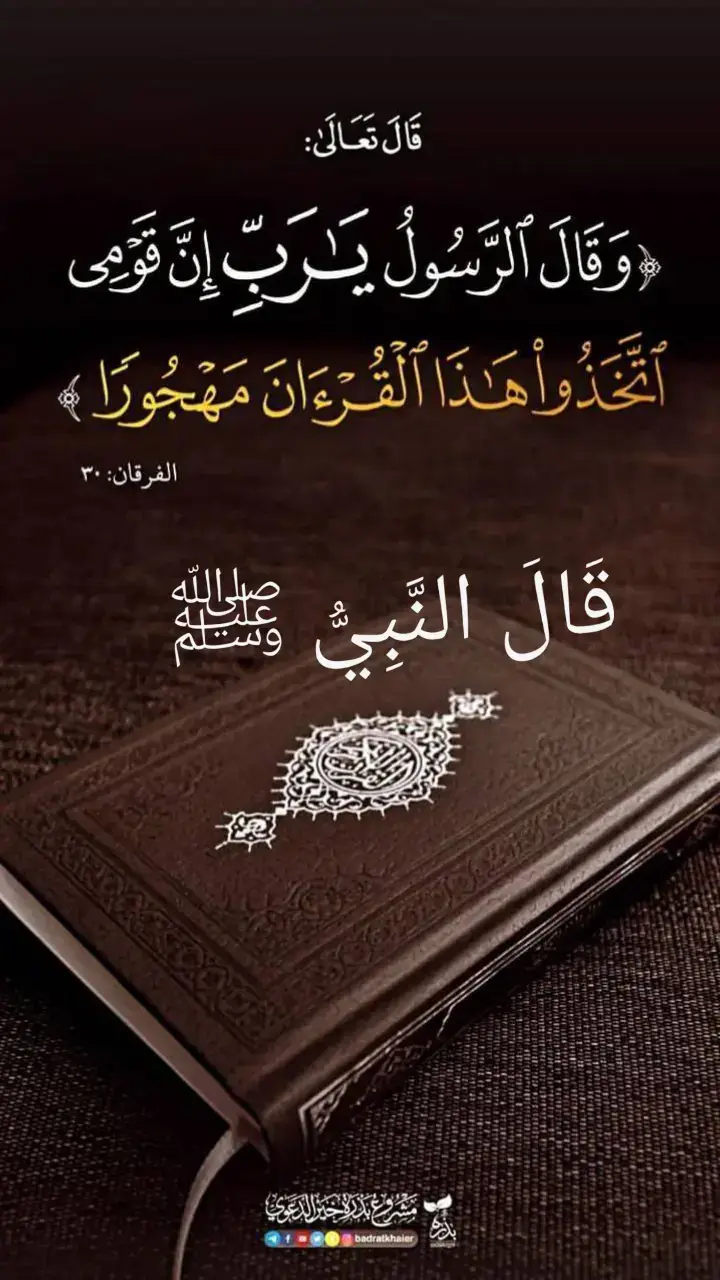 قَالَ تَعَالَىٰ:
﴿وَقَالَ ٱلرَّسُولُ يَـٰرَبِّ إِنَّ قَوْمِى
ٱتَّخَذُوا۟ هَـٰذَا ٱلْقُرْءَانَ مَهْجُورًا﴾
الفرقان: ٣٠
قَالَ النَّبِيُّ ﷺ
مشروع بذرة خير الدعوي
بذرة
badratkhaier